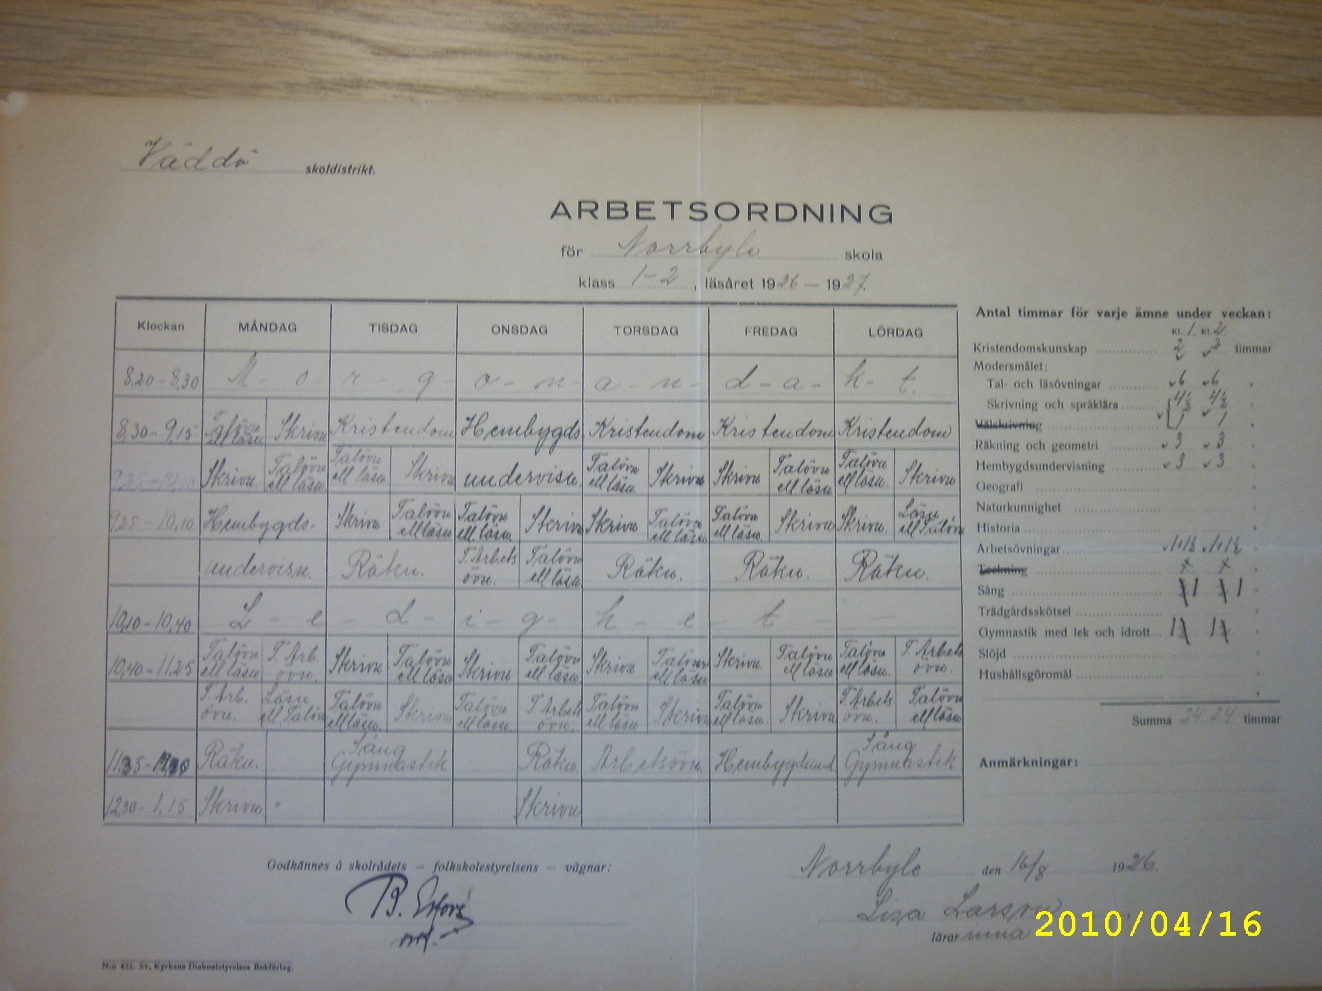 Väddö skoldistrikt.
ARBETSORDNING
för Norrbyle skola
klass 1-2, läsåret 1926 — 1927.
Klockan MÅNDAG TISDAG ONSDAG TORSDAG FREDAG LÖRDAG
8,20 - 8,30 M - o - r - g - o - n - a - n - d - a - k - t.
8,30 - 9,15 Talövn ell läsn. Skrivn Kristendom Hembygds Kristendom Kristendom Kristendom
Skrivn. Talövn ell läsn. Talövn ell läsn. Skrivn undervisn. Talövn ell läsn. Skrivn Skrivn. Talövn ell läsn. Talövn ell läsn. Skrivn
9,25 - 10,10 Hembygds- Skrivn Talövn ell läsn Talövn ell läsn. Skrivn Skrivn Talövn ell läsn. Talövn ell läsn. Skrivn Skrivn. Läsn ell Talövn
undervisn. Räkn. T. Arbets övn. Talövn ell läsn Räkn. Räkn. Räkn.
10,10 - 10,40 L - e - d - i - g - h - e - t
10,40 - 11.25 Talövn ell läsn. T. Arb. övn. Skrivn Talövn ell läsn Skrivn Talövn ell läsn. Skrivn Talövn ell läsn Skrivn. Talövn ell läsn Talövn ell läsn. T. Arbets övn.
T. Arb. övn. Läsn ell Talövn Talövn ell läsn. Skrivn Talövn ell läsn. T. Arbets övn. Talövn ell läsn. Skrivn Talövn ell läsn. Skrivn T. Arbets övn. Talövn ell läsn.
Räkn. Sång Gymnastik Räkn Arbetsövn. Hembygdsund Sång Gymnastik
12,30 - 1,15 Skrivn Skrivn
Antal timmar för varje ämne under veckan:
Kl. 1. Kl. 2.
Kristendomskunskap 2 2 timmar
Modersmålet:
Tal- och läsövningar 6 6 "
Skrivning och språklära 4½ 4½ "
Välskrivning 1 1 "
Räkning och geometri 3 3 "
Hembygdsundervisning 3 3 "
Geografi "
Naturkunnighet "
Historia "
Arbetsövningar 1+½ 1+½ "
Teckning "
Sång 1 1 "
Trädgårdsskötsel "
Gymnastik med lek och idrott 1 1 "
Slöjd "
Hushållsgöromål "
Summa 24 24 timmar
Anmärkningar:
Godkännes å skolrådets — folkskolestyrelsens — vägnar:
B.
Norrbyle den 16/8 1926.
Lisa Larson
lärarinna
N:o 421. Sv. Kyrkans Diakonistyrelses Bokförlag.
2010/04/16